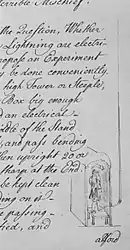 rrible Mischief.
the Question, Whether
Lightning are electri-
ropose an Experiment
y be done conveniently.
high Tower or Steeple,
Box big enough
and an electrical
iddle of the Stand
and pass bending
hen upright 20 or
sharp at the End.
be kept clean
ing on it
re passing
fied, and
afford